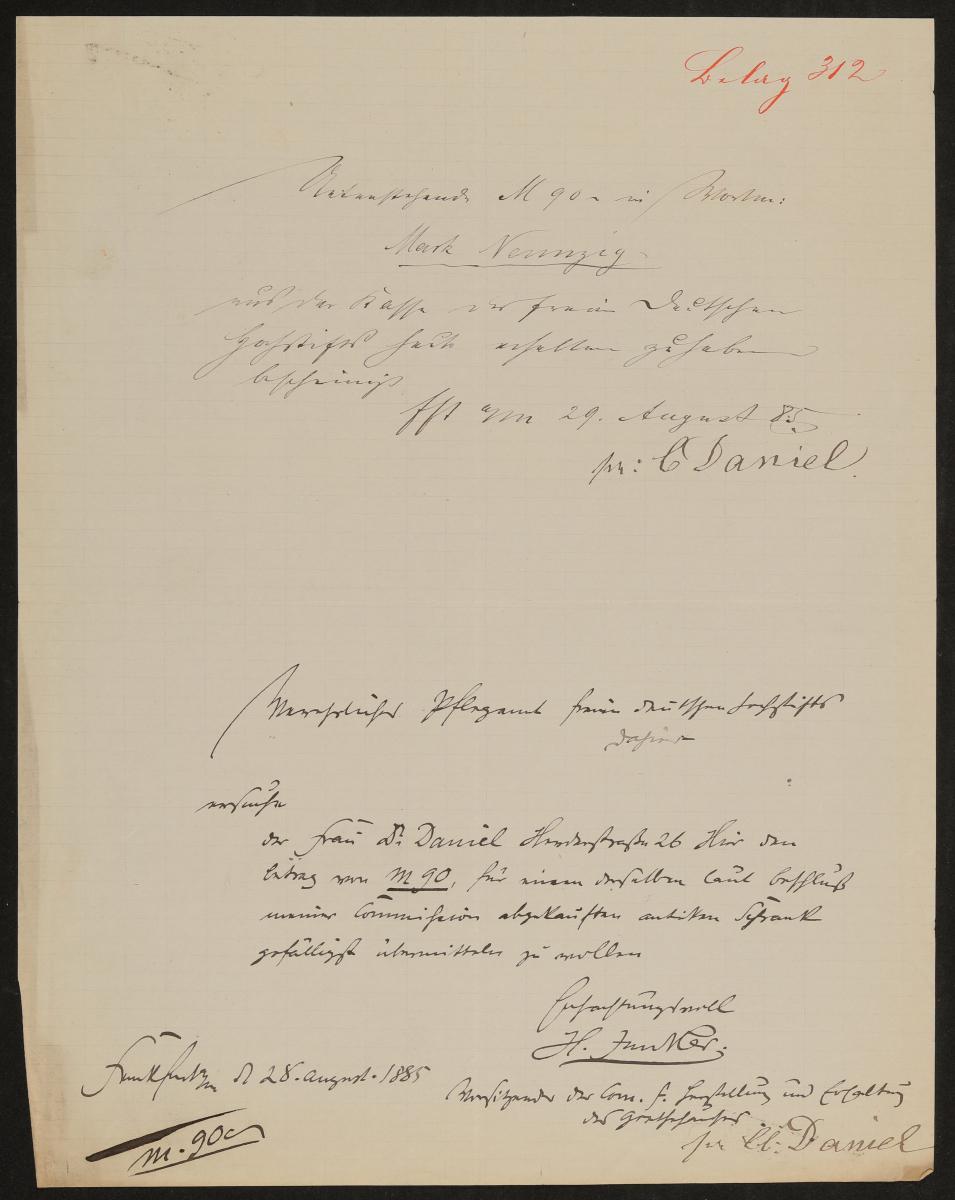 Belag 312
Untenstehende M 90 – in Worten:
Mark Neunzig –
aus der Kasse des freien Deutschen
Hochstifts heute erhalten zu haben
bescheinigt
Fft a/M 29. August 85.
pr: C Daniel.
Verehrliches Pflegamt freien deutschen Hochstifts
dahier
ersuche
der Frau Dr. Daniel Herderstraße 26 Hier den
betrag von M 90, für einen derselben laut beschluß
meiner Commission abgekauften antiken Schrank
gefälligst übermitteln zu wollen
Hochachtungsvoll
H. Junker.
Frankfurt a/m d 28. august. 1885
Vorsitzender der Com. f. Herstellung und Erhaltung
des Goethehauses
M. 90
pr Cl. Daniel